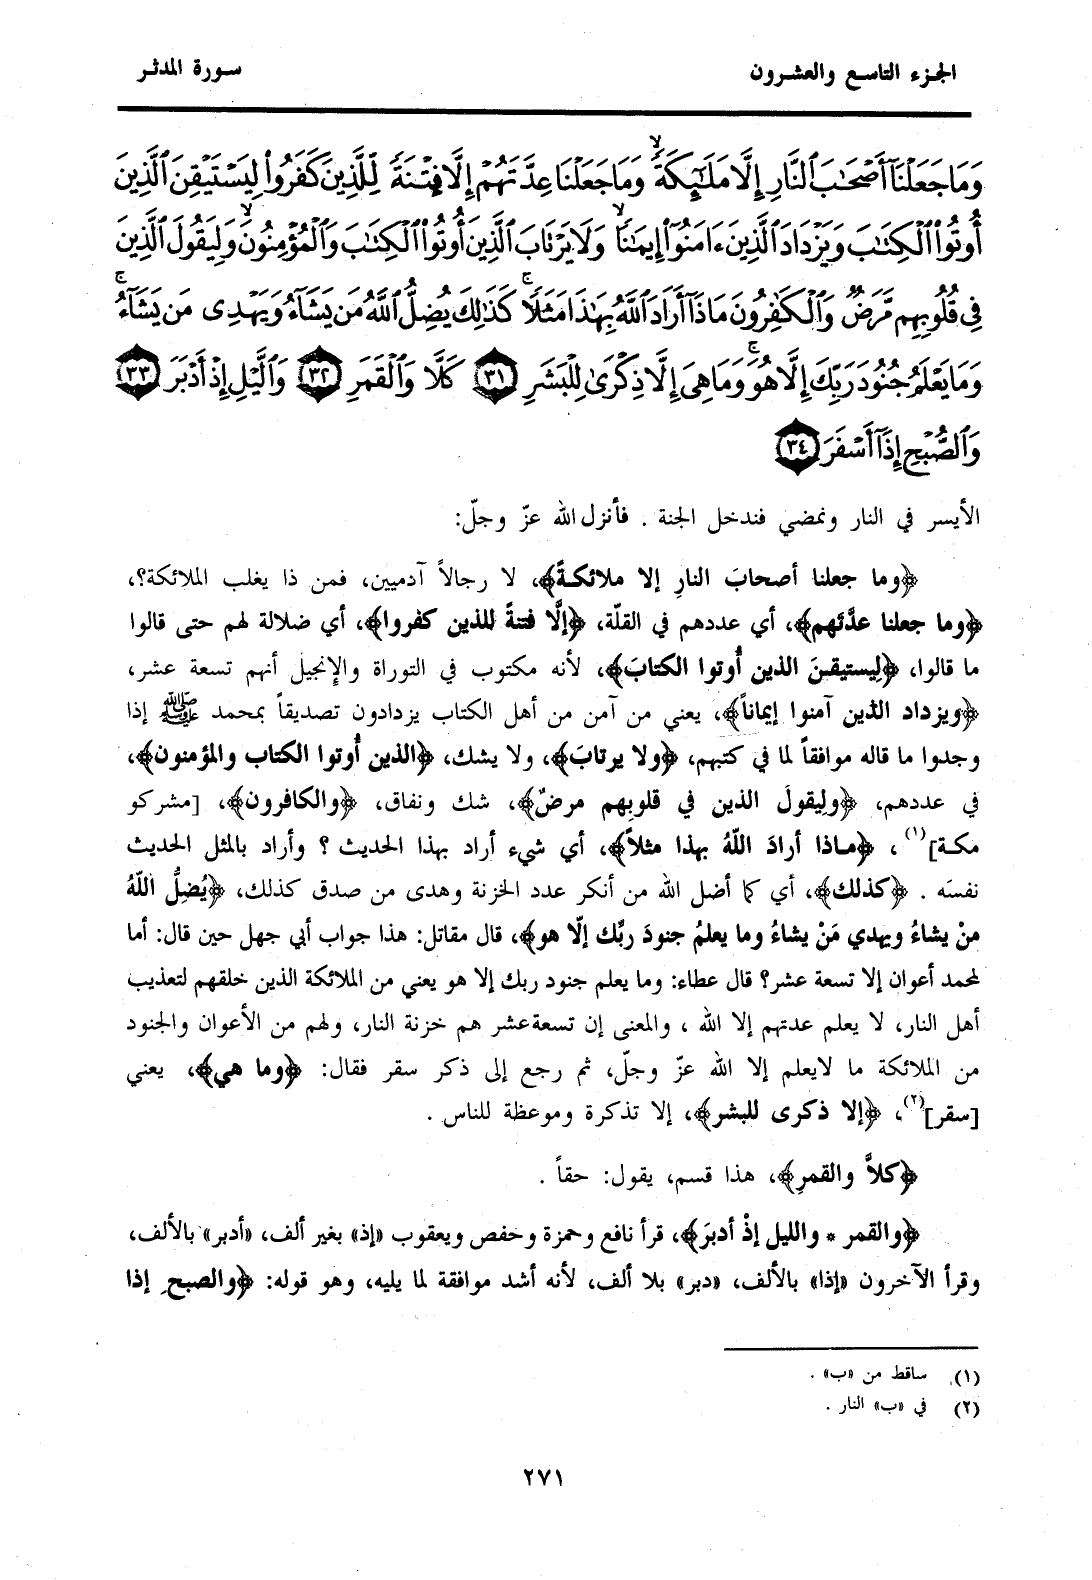 الجزء التاسع والعشرون
سورة المدثر
وَمَا جَعَلْنَآ أَصْحَٰبَ ٱلنَّارِ إِلَّا مَلَٰٓئِكَةً ۙ وَمَا جَعَلْنَا عِدَّتَهُمْ إِلَّا فِتْنَةً لِّلَّذِينَ كَفَرُوا۟ لِيَسْتَيْقِنَ ٱلَّذِينَ
أُوتُوا۟ ٱلْكِتَٰبَ وَيَزْدَادَ ٱلَّذِينَ ءَامَنُوٓا۟ إِيمَٰنًا ۙ وَلَا يَرْتَابَ ٱلَّذِينَ أُوتُوا۟ ٱلْكِتَٰبَ وَٱلْمُؤْمِنُونَ ۙ وَلِيَقُولَ ٱلَّذِينَ
فِى قُلُوبِهِم مَّرَضٌ وَٱلْكَٰفِرُونَ مَاذَآ أَرَادَ ٱللَّهُ بِهَٰذَا مَثَلًا ۚ كَذَٰلِكَ يُضِلُّ ٱللَّهُ مَن يَشَآءُ وَيَهْدِى مَن يَشَآءُ ۚ
وَمَا يَعْلَمُ جُنُودَ رَبِّكَ إِلَّا هُوَ ۚ وَمَا هِىَ إِلَّا ذِكْرَىٰ لِلْبَشَرِ ٣١ كَلَّا وَٱلْقَمَرِ ٣٢ وَٱلَّيْلِ إِذْ أَدْبَرَ ٣٣
وَٱلصُّبْحِ إِذَآ أَسْفَرَ ٣٤
الأيسر في النار ونمضي فندخل الجنة . فأنزل الله عزّ وجلّ:
﴿وما جعلنا أصحابَ النارِ إلا ملائكةً﴾، لا رجالاً آدميين، فمن ذا يغلب الملائكة؟،
﴿وما جعلنا عدَّتهم﴾، أي عددهم في القلّة، ﴿إلَّا فتنةً للذين كفروا﴾، أي ضلالة لهم حتى قالوا
ما قالوا، ﴿لِيستيقنَ الذين أُوتوا الكتابَ﴾، لأنه مكتوب في التوراة والإنجيل أنهم تسعة عشر،
﴿ويزداد الذين آمنوا إيماناً﴾، يعني من آمن من أهل الكتاب يزدادون تصديقاً بمحمد ﷺ إذا
وجدوا ما قاله موافقاً لما في كتبهم، ﴿ولا يرتابَ﴾، ولا يشك، ﴿الذين أُوتوا الكتاب والمؤمنون﴾،
في عددهم، ﴿وليقولَ الذين في قلوبِهم مرضٌ﴾، شك ونفاق، ﴿والكافرون﴾، [مشركو
مكة](١)، ﴿ماذا أرادَ اللّهُ بهذا مثلاً﴾، أي شيء أراد بهذا الحديث ؟ وأراد بالمثل الحديث
نفسَه . ﴿كذلك﴾، أي كما أضل الله من أنكر عدد الخزنة وهدى من صدق كذلك، ﴿يُضلُّ اللّهُ
منْ يشاءُ ويهدي مَنْ يشاءُ وما يعلمُ جنودَ ربِّك إلّا هو﴾، قال مقاتل: هذا جواب أبي جهل حين قال: أما
لمحمد أعوان إلا تسعة عشر؟ قال عطاء: وما يعلم جنود ربك إلا هو يعني من الملائكة الذين خلقهم لتعذيب
أهل النار، لا يعلم عدتهم إلا الله ، والمعنى إن تسعة عشر هم خزنة النار، ولهم من الأعوان والجنود
من الملائكة ما لايعلم إلا الله عزّ وجلّ، ثم رجع إلى ذكر سقر فقال: ﴿وما هي﴾، يعني
[سقر](٢)، ﴿إلا ذكرى للبشر﴾، إلا تذكرة وموعظة للناس .
﴿كلاَّ والقمرِ﴾، هذا قسم، يقول: حقاً .
﴿والقمر * والليل إذْ أدبرَ﴾، قرأ نافع وحمزة وحفص ويعقوب «إذ» بغير ألف، «أدبر» بالألف،
وقرأ الآخرون «إذا» بالألف، «دبر» بلا ألف، لأنه أشد موافقة لما يليه، وهو قوله: ﴿والصبحِ إذا
(١) ساقط من «ب» .
(٢) في «ب» النار .
٢٧١